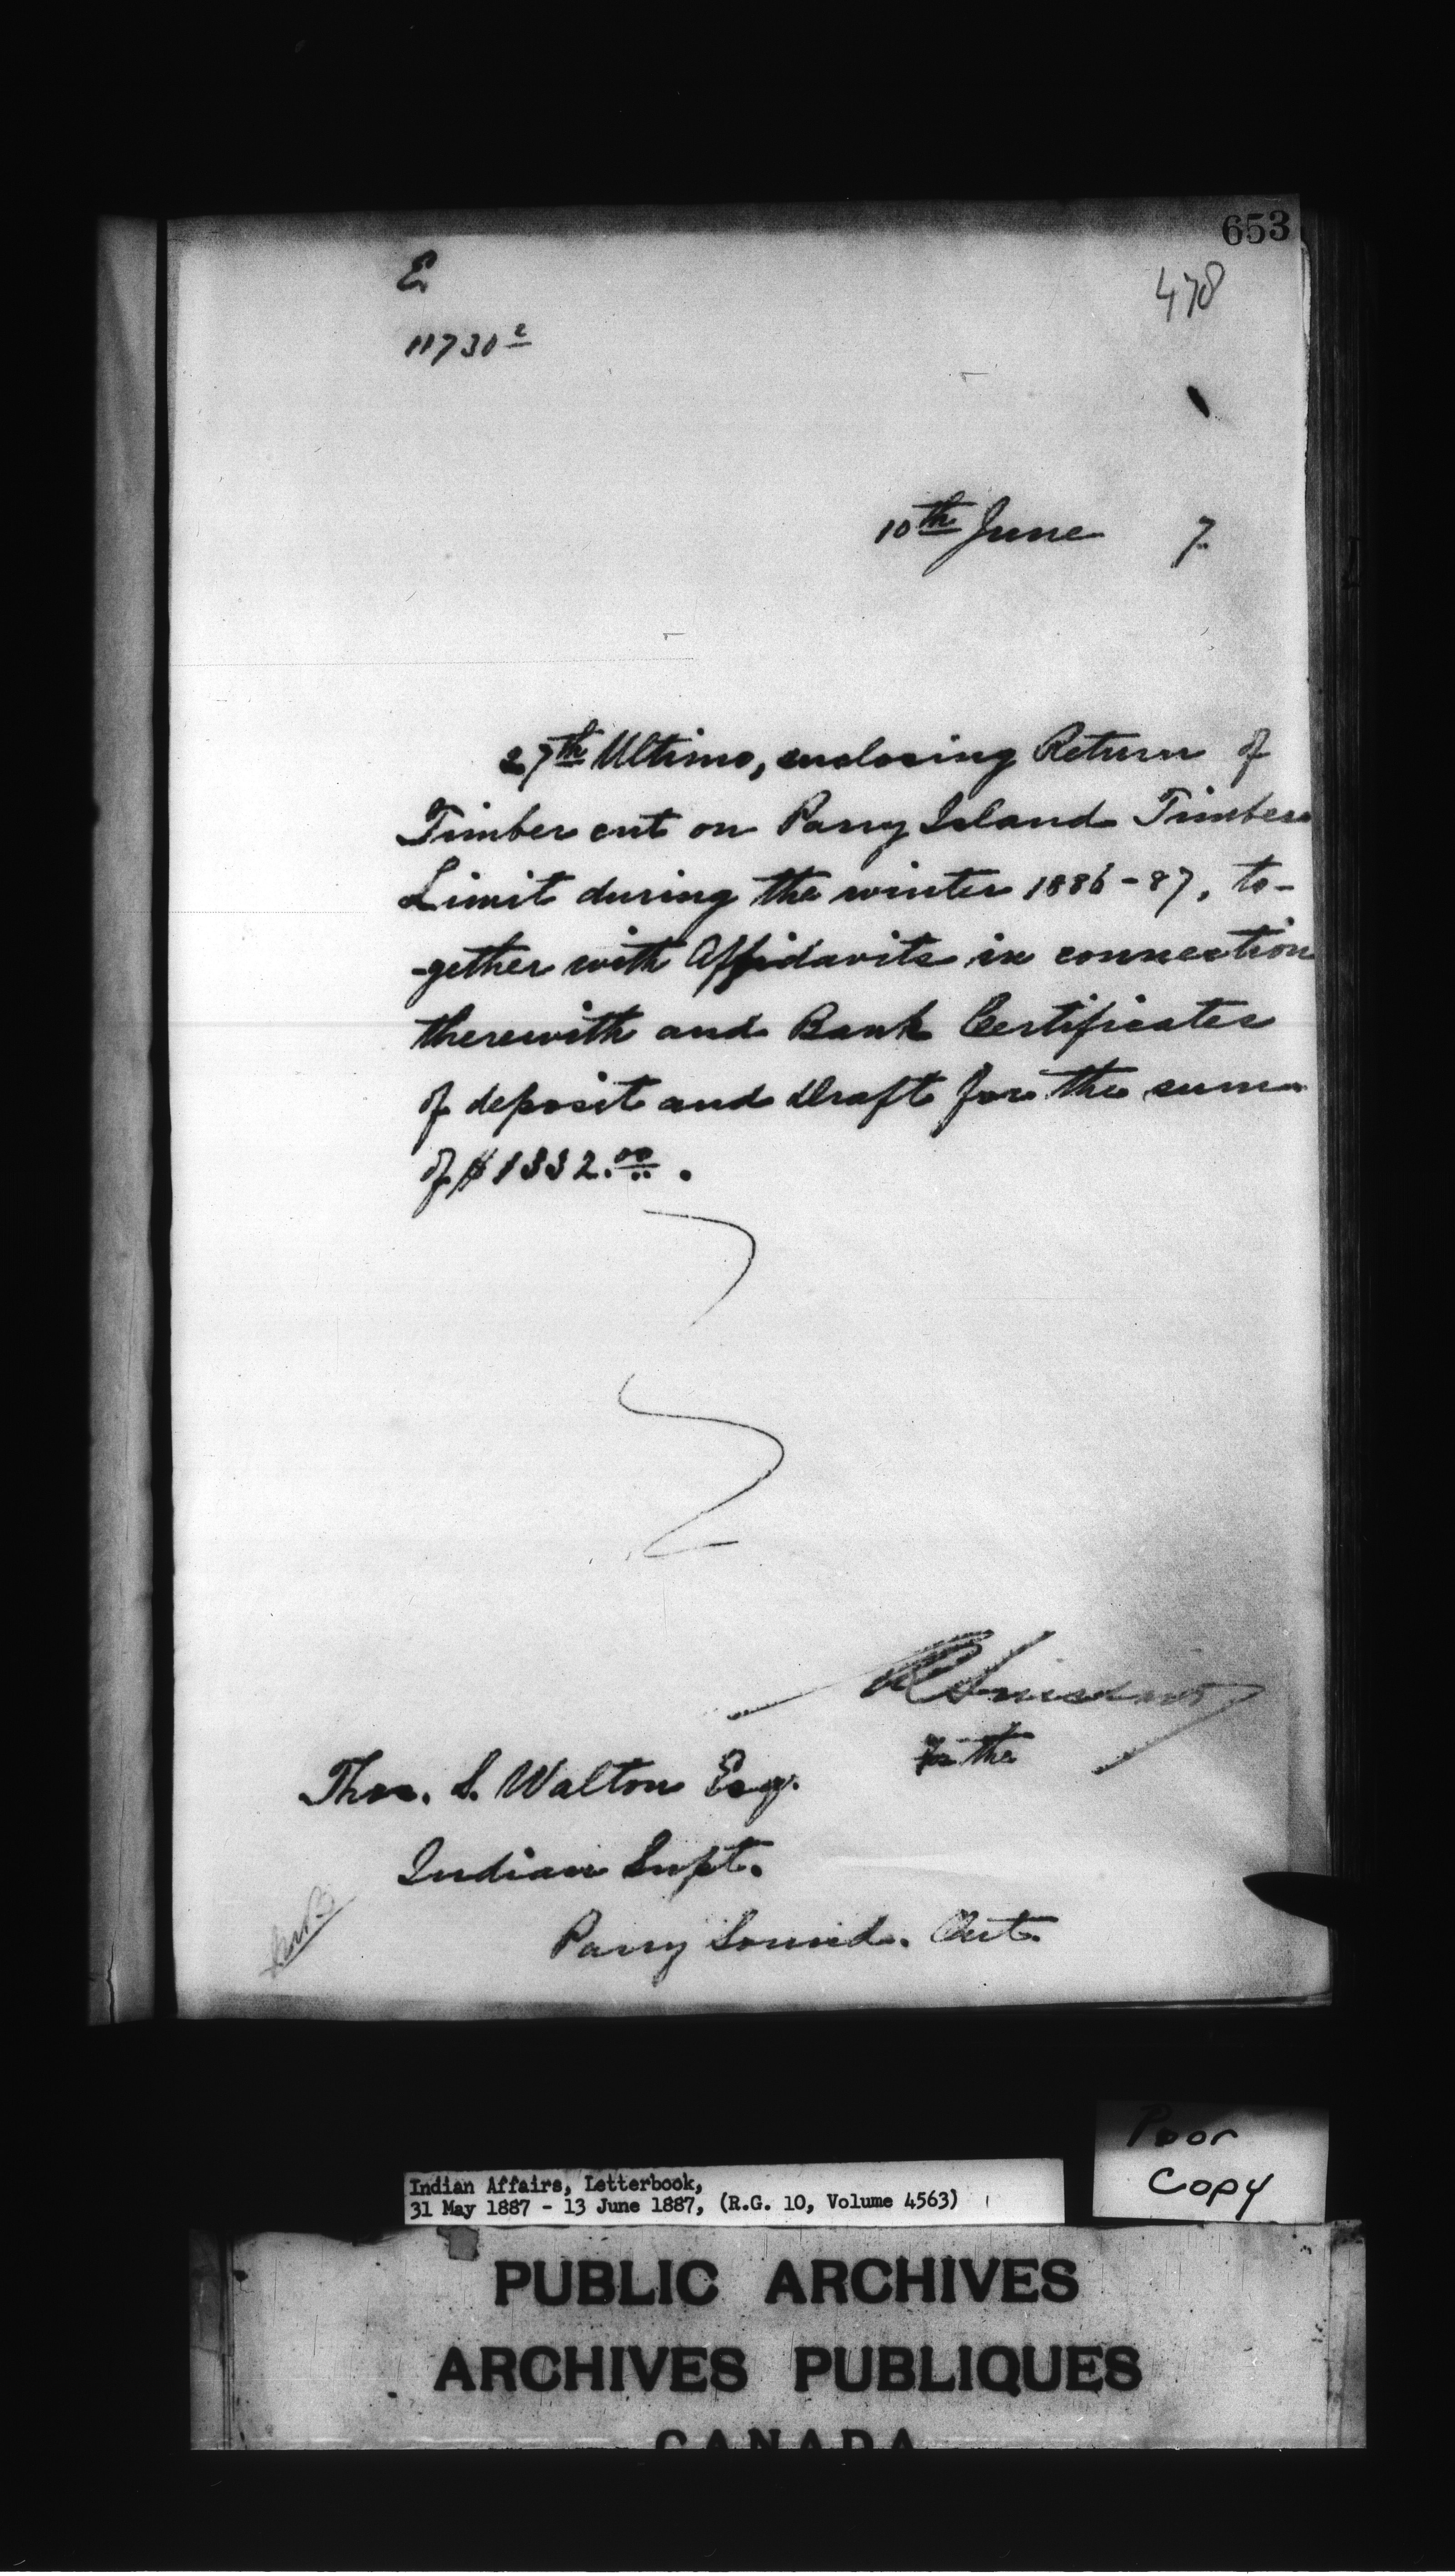 653
478
E
11730²
10th June 7.
27th Ultimo, enclosing Return of
Timber cut on Parry Island Timber
Limit during the winter 1886-87, to-
-gether with Affidavits in connection
therewith and Bank Certificates
of deposit and Draft for the sum
of $1332.00.
For the
Thos. S. Walton Esq.
Indian Supt.
Parry Sound. Ont.
Poor
Copy
Indian Affairs, Letterbook,
31 May 1887 - 13 June 1887, (R.G. 10, Volume 4563)
PUBLIC ARCHIVES
ARCHIVES PUBLIQUES
CANADA